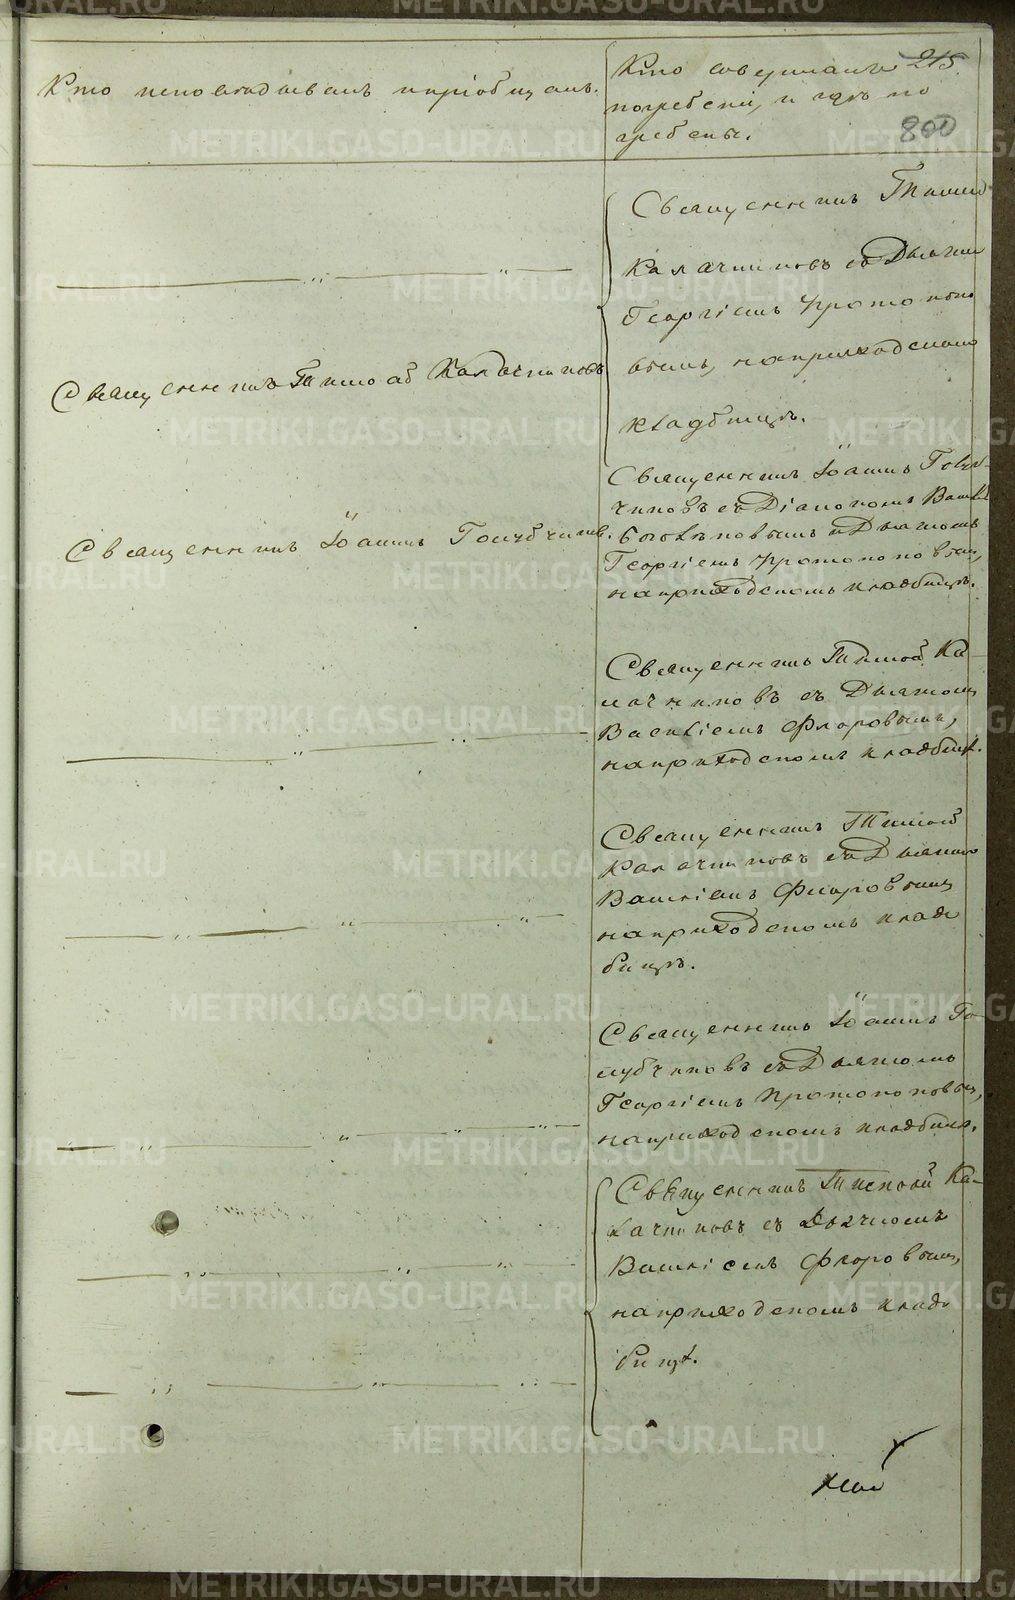 Кто исповѣдывалъ и пріобщалъ.
Кто совершалъ
погребеніе, и гдѣ по
гребены.
215.
800
Священникъ Тимоѳ
Калачниковъ съ Дьячко
Георгіемъ Протопопо
вымъ, наприходскомъ
кладбищѣ.
Священникъ Тимоѳ Калачниковъ
Священникъ Іоаннъ Голуб-
чиковъ съ Діакономъ
Дьячкомъ
Георгіемъ Протопоповым,
наприходскомъ кладбищѣ.
Священникъ Іоаннъ Голубчиков.
Священникъ Тимоѳей Ка-
лачниковъ съ Дьячкомъ
Василіемъ Флоровымъ,
наприходскомъ кладбищѣ.
Священникъ Тимоѳей
Калачниковъ съ Дьячком
Василіемъ Флоровымъ
наприходскомъ клад-
бищѣ.
Священникъ Іоаннъ Го-
лубчиковъ съ Дьячкомъ
Георгіемъ Протопоповым,
наприходскомъ кладбищ.
Священникъ Тимоѳей Ка-
лачниковъ съ Дьячкомъ
Василіемъ Флоровым,
наприходскомъ клад-
бищѣ.
METRIKI.GASO-URAL.RU